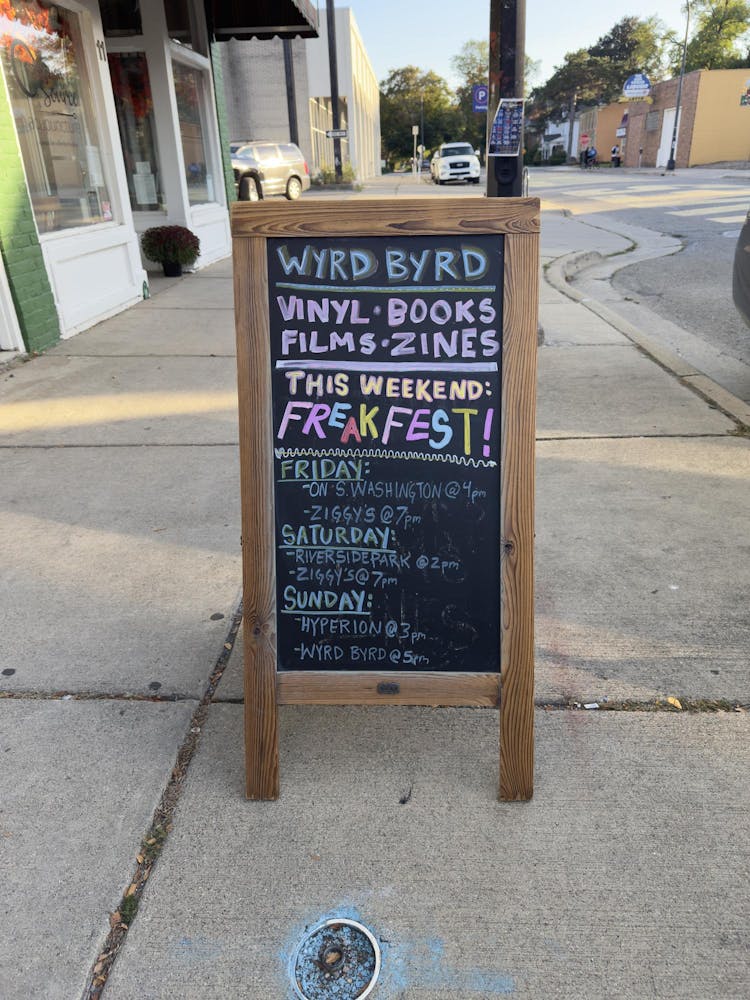 WYRD BYRD
VINYL • BOOKS
FILMS • ZINES
THIS WEEKEND:
FREAKFEST!
FRIDAY:
-ON S. WASHINGTON @ 4pm
-ZIGGY'S @ 7pm
SATURDAY:
-RIVERSIDE PARK @ 2pm
-ZIGGY'S @ 7pm
SUNDAY:
-HYPERION @ 3pm
-WYRD BYRD @ 5pm
11
P